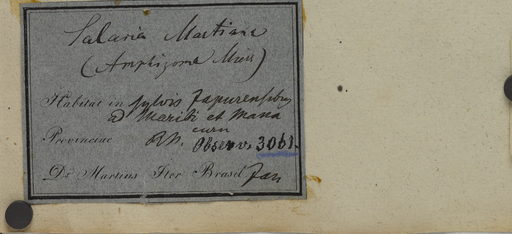 Salacia Martiana
(Amphizoma Miers)
Habitat in sylvis Japurensibus
ad Maribi et Mana
Provinciae R.N. cum
Observ. 3061.
Dr. Martius Iter Brasil Jan